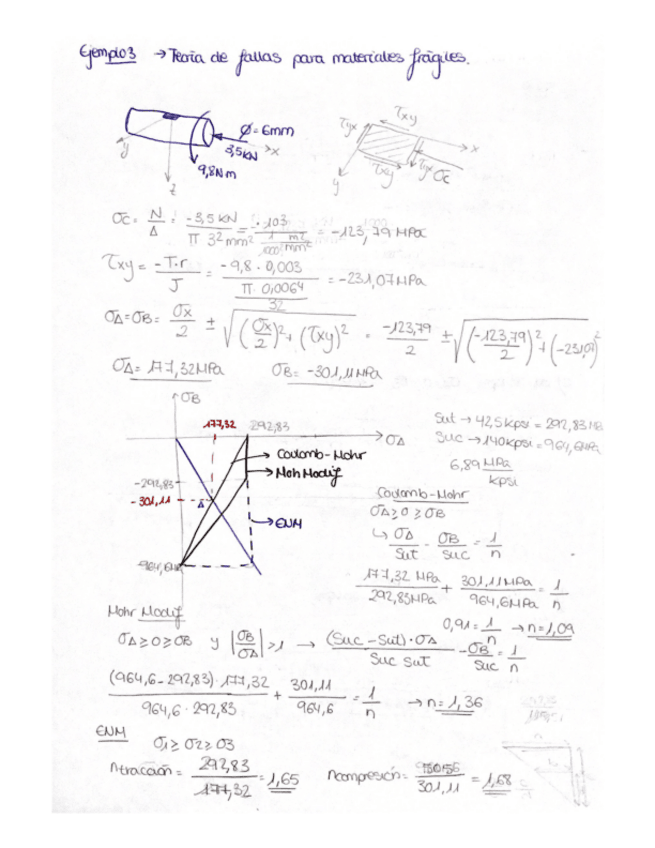 Ejemplo3 → Teoría de fallas para materiales frágiles.
Ø=6mm
3,5kN
9,8Nm
x
y
z
τxy
τyx
x
τxy
τyx
σc
y
σc = N/A = -3,5 kN / π 3² mm² = · 10³ / 1/1000² m²/mm² = -123,79 MPa
τxy = -T·r / J = -9,8 · 0,003 / π · 0,006⁴ / 32 = -231,07MPa
σA=σB= σx/2 ± √((σx/2)² + (τxy)²) = -123,79/2 ± √((-123,79/2)² + (-231,07)²
σA= 177,32MPa σB= -301,11MPa
σB
177,32
292,83
σA
Coulomb-Mohr
Moh Modif
-292,83
-301,11
A
ENM
-964,6
Sut → 42,5kpsi = 292,83 MPa
Suc → 140kpsi = 964,6MPa
6,89 MPa/kpsi
Coulomb-Mohr
σA ≥ 0 ≥ σB
↳ σA/Sut - σB/Suc = 1/n
177,32 MPa / 292,83MPa + 301,11MPa / 964,6MPa = 1/n
0,91 = 1/n → n=1,09
Mohr Modif
σA ≥ 0 ≥ σB y |σB/σA| > 1 → (Suc - Sut) · σA / Suc Sut - σB/Suc = 1/n
(964,6 - 292,83) · 177,32 / 964,6 · 292,83 + 301,11 / 964,6 = 1/n → n= 1,36
ENM
σ1 ≥ σ2 ≥ σ3
ntracción = 292,83 / 177,32 = 1,65 ncompresión = / 301,11 = 1,68